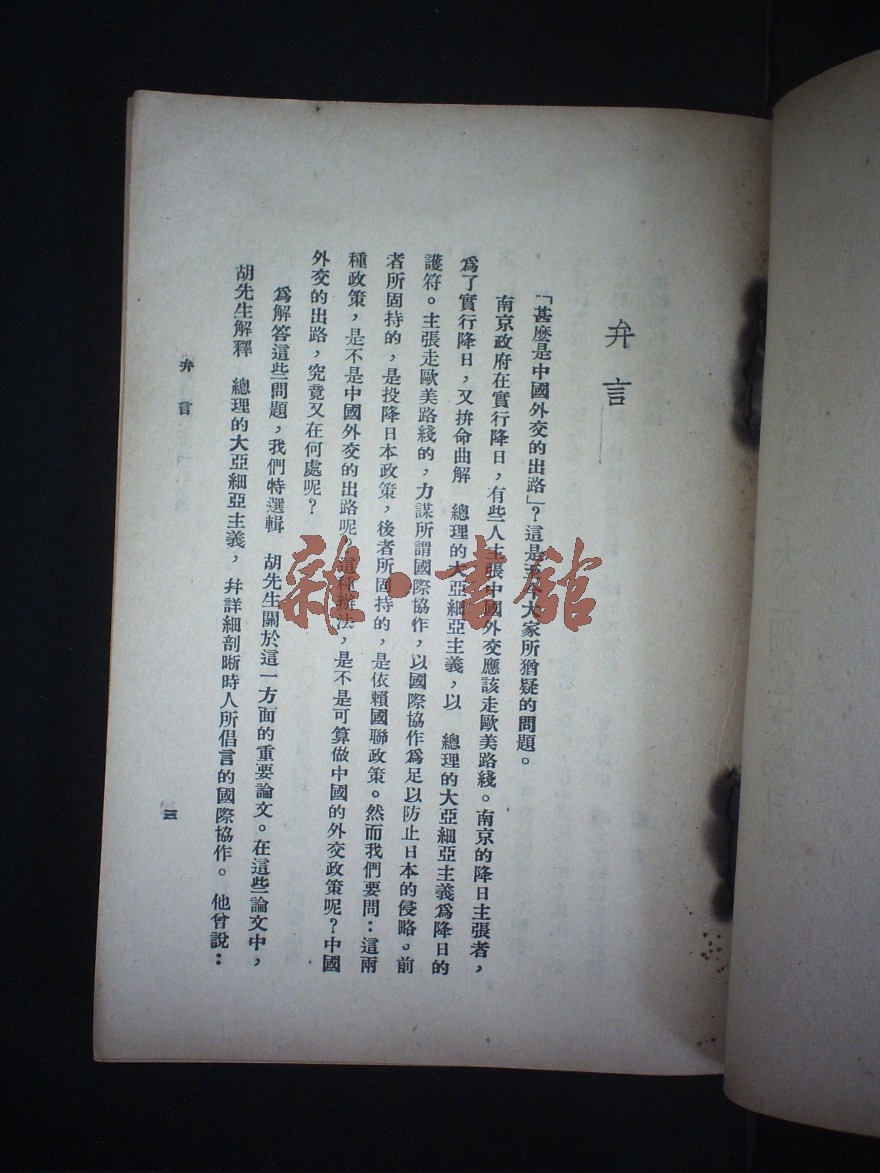 弁言
「甚麽是中國外交的出路」?這是至今大家所猶疑的問題。
南京政府在實行降日,有些人主張中國外交應該走歐美路綫。南京的降日主張者,
爲了實行降日,又拚命曲解 總理的大亞細亞主義,以 總理的大亞細亞主義爲降日的
護符。主張走歐美路綫的,力謀所謂國際協作,以國際協作爲足以防止日本的侵略。前
者所固持的,是投降日本政策,後者所固持的,是依賴國聯政策。然而我們要問:這兩
種政策,是不是中國外交的出路呢?這種辦法,是不是可算做中國的外交政策呢?中國
外交的出路,究竟又在何處呢?
爲解答這些問題,我們特選輯 胡先生關於這一方面的重要論文。在這些論文中,
胡先生解釋 總理的大亞細亞主義,幷詳細剖晰時人所倡言的國際協作。他曾說:
弁言
三
雜·書館